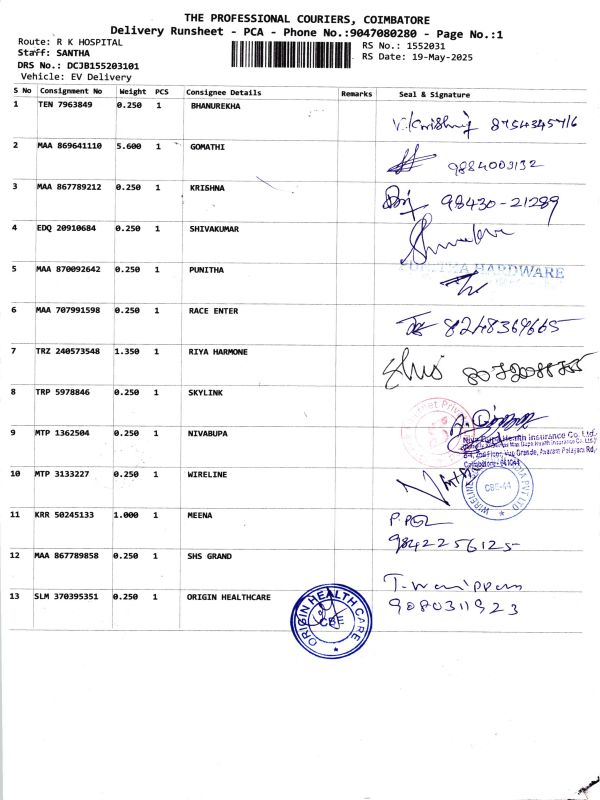 THE PROFESSIONAL COURIERS, COIMBATORE
Delivery Runsheet - PCA - Phone No.:9047080280 - Page No.:1
Route: R K HOSPITAL
Staff: SANTHA
DRS No.: DCJB155203101
Vehicle: EV Delivery
RS No.: 1552031
RS Date: 19-May-2025
S No Consignment No Weight PCS Consignee Details Remarks Seal & Signature
1 TEN 7963849 0.250 1 BHANUREKHA
8754345716
2 MAA 869641110 5.600 1 GOMATHI
9884003132
3 MAA 867789212 0.250 1 KRISHNA
98430-21289
4 EDQ 20910684 0.250 1 SHIVAKUMAR
5 MAA 870092642 0.250 1 PUNITHA
HARDWARE
6 MAA 707991598 0.250 1 RACE ENTER
8248369665
7 TRZ 240573548 1.350 1 RIYA HARMONE
8 TRP 5978846 0.250 1 SKYLINK
9 MTP 1362504 0.250 1 NIVABUPA
Niva Bupa Health Insurance Co. Ltd.
Coimbatore - 641044
10 MTP 3133227 0.250 1 WIRELINE
WIRELINE
PVT LTD
CBE-44
11 KRR 50245133 1.000 1 MEENA
9842256125
12 MAA 867789858 0.250 1 SHS GRAND
13 SLM 370395351 0.250 1 ORIGIN HEALTHCARE
9080311923
ORIGIN HEALTH CARE
CBE